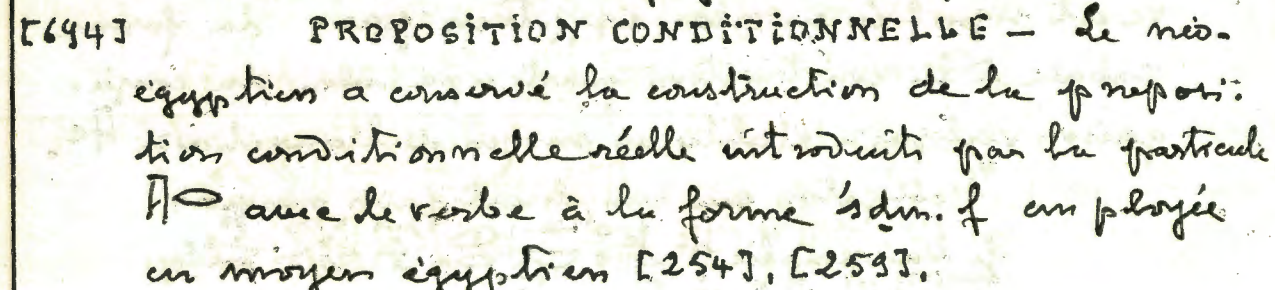 [694] PROPOSITION CONDITIONNELLE — Le néo-
égyptien a conservé la construction de la preposi-
tion conditionnelle réelle introduite par la particule
𓇋𓂋 avec le verbe à la forme sḏm.f employée
en moyen égyptien [254], [259].